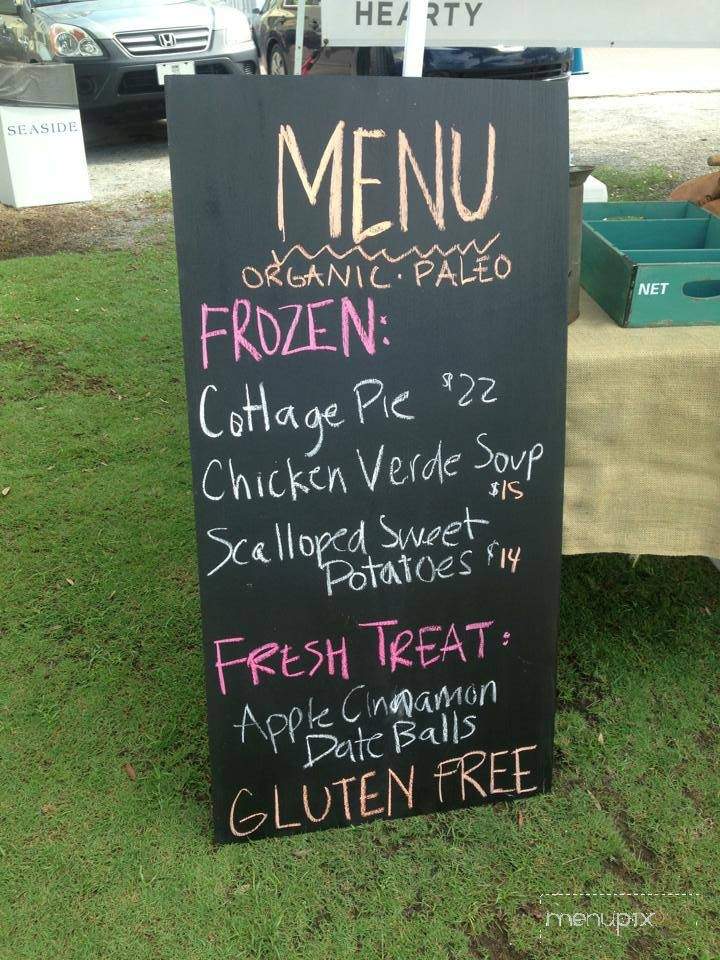 HEARTY
SEASIDE
MENU
ORGANIC · PALEO
FROZEN:
NET
Cottage Pie $22
Chicken Verde Soup
$15
Scalloped Sweet
Potatoes $14
FRESH TREAT:
Apple Cinnamon
Date Balls
GLUTEN FREE
menupix